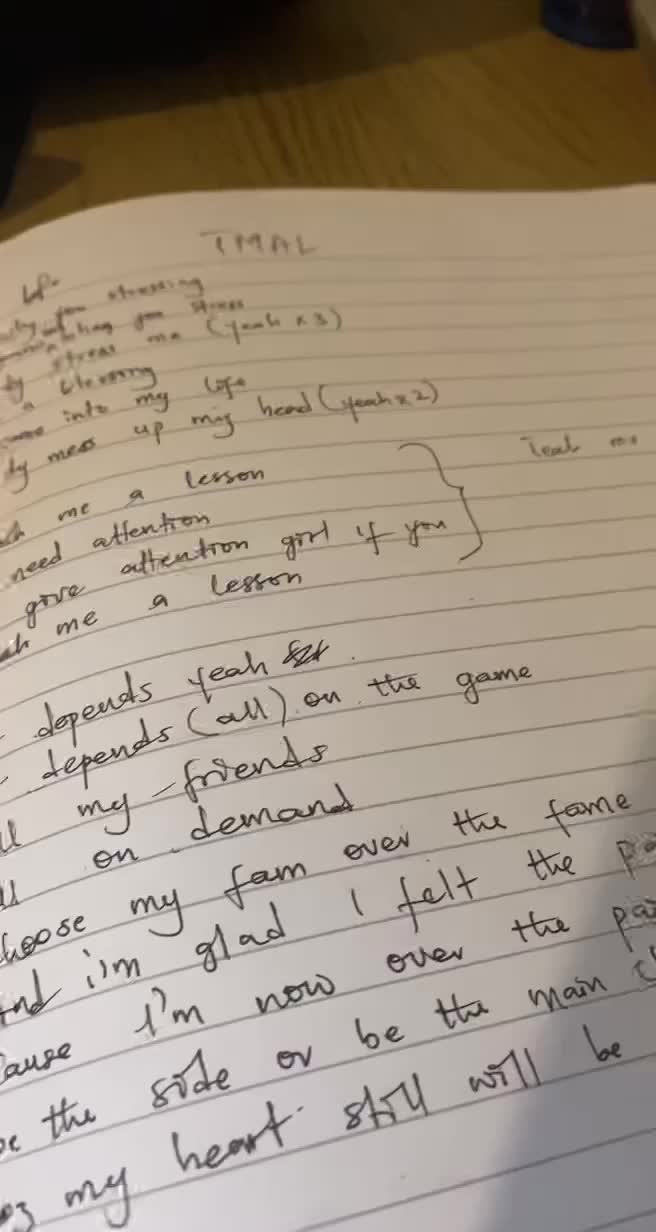 TMAL
stressing
you stress
stress me (yeah x 3)
a blessing
into my life
mess up my head (yeah x 2)
me a lesson
need attention
give attention girl if you
me a lesson
depends yeah
depends (all) on the game
my friends
on demand
choose my fam over the fame
And i'm glad I felt the
Cause I'm now over the
the side or be the main
my heart still will be